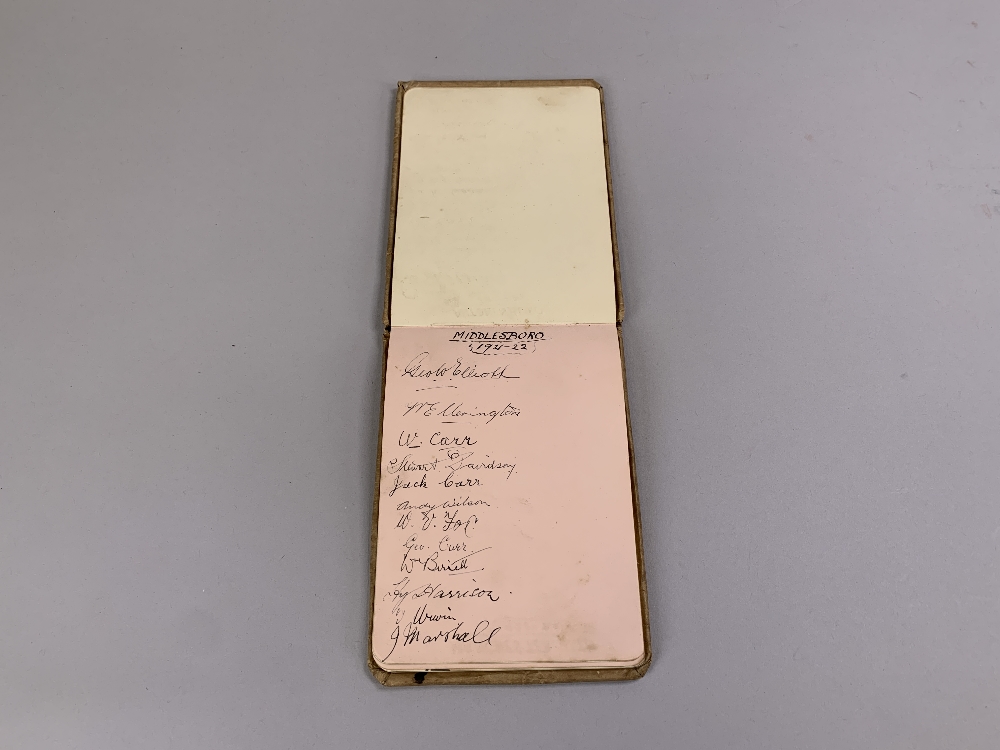 MIDDLESBORO
1921-22
Geo W Elliott
W Carr
Stewart Davidson
Jack Carr
Andy Wilson
W. V. Fox
Geo. Carr
Wm Birrell
Hy Harrison
Urwin
J Marshall